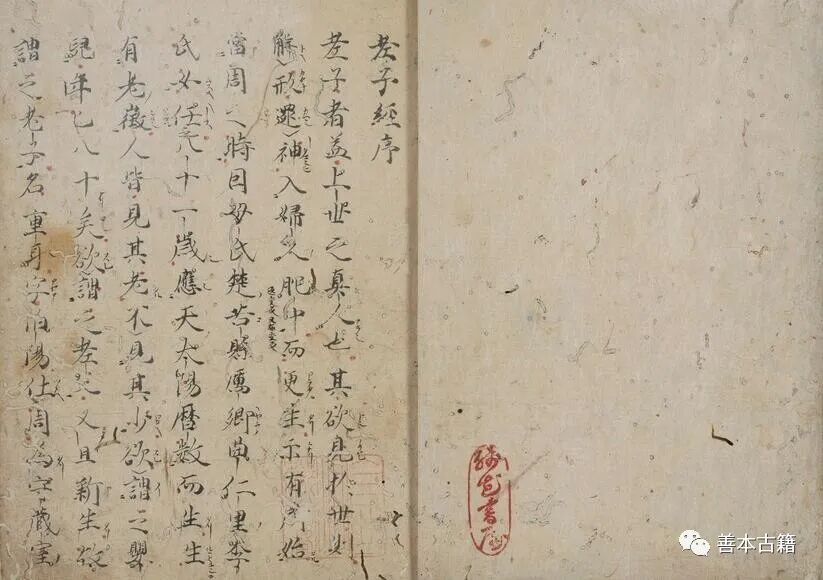 老子經序
老子者蓋上世之真人也其欲見於世則
解形還神入婦人胞中而更生示有所始
當周之時因母氏楚苦縣厲鄉曲仁里李
氏女任八十一歲應天太陽曆數而生生
有老徵人皆見其老不見其少欲謂之嬰
兒年已八十矣欲謂之老父又且新生故
謂之老子名重耳字伯陽仕周為守藏室
善本古籍